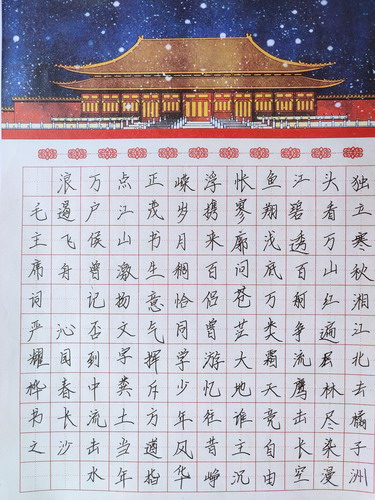 独立寒秋湘江北去橘子洲
头看万山红遍层林尽染漫
江碧透百舸争流鹰击长空
鱼翔浅底万类霜天竞自由
怅寥廓问苍茫大地谁主沉
浮携来百侣曾游忆往昔峥
嵘岁月稠恰同学少年风华
正茂书生意气挥斥方遒指
点江山激扬文字粪土当年
万户侯曾记否到中流击水
浪遏飞舟 沁园春长沙
毛主席词 严耀桦书